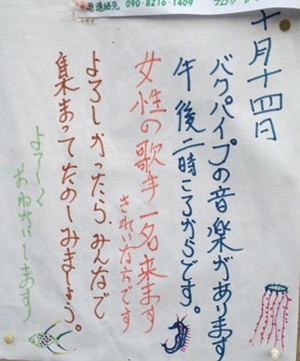 連絡先 090-8216-1409
十月十四日
バクパイプの音楽があります
午後二時ころからです。
女性の歌手一名来ます
きれいな方です
よろしかったら、みんなで
集まってたのしみましょう。
よろしく
おねがいします